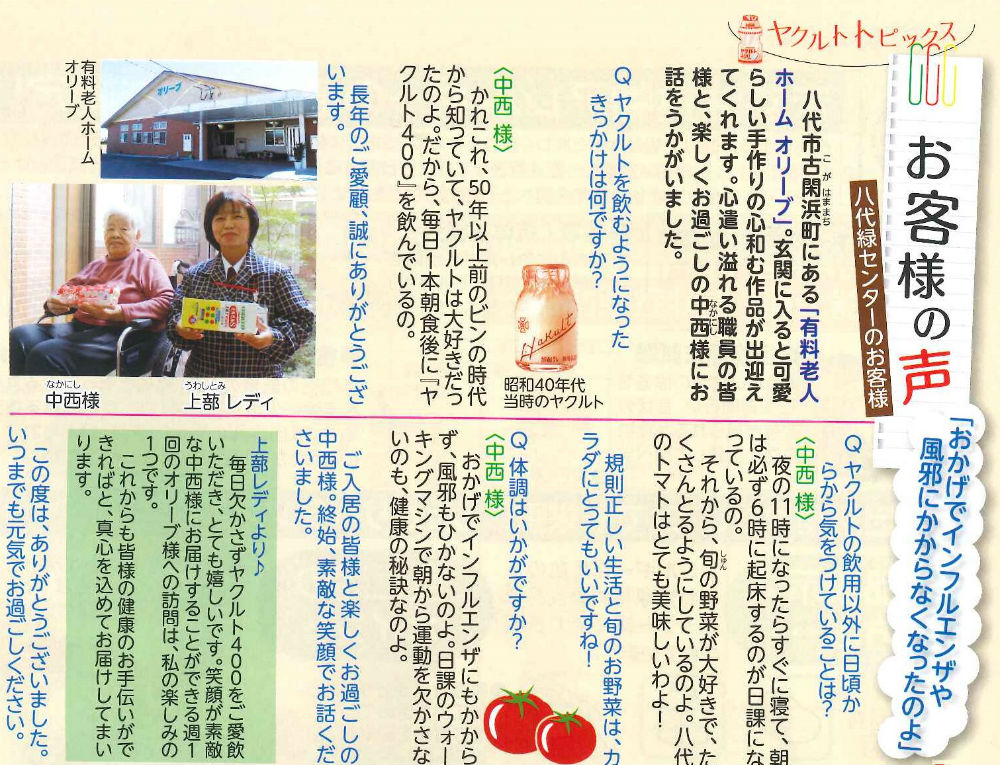 ヤクルトトピックス
お客様の声
八代緑センターのお客様
「おかげでインフルエンザや
風邪にかからなくなったのよ」
八代市古閑浜町にある「有料老人
ホーム オリーブ」。玄関に入ると可愛
らしい手作りの心和む作品が出迎え
てくれます。心遣い溢れる職員の皆
様と、楽しくお過ごしの中西様にお
話をうかがいました。
Q ヤクルトを飲むようになった
きっかけは何ですか?
Yakult
昭和40年代
当時のヤクルト
〈中西 様〉
かれこれ、50年以上前のビンの時代
から知っていて、ヤクルトは大好きだっ
たのよ。だから、毎日1本朝食後に『ヤ
クルト400』を飲んでいるの。
長年のご愛顧、誠にありがとうござ
います。
オリーブ
有料老人ホーム
オリーブ
なかにし
中西様
うわしとみ
上部 レディ
Q ヤクルトの飲用以外に日頃か
らから気をつけていることは?
〈中西 様〉
夜の11時になったらすぐに寝て、朝
は必ず6時に起床するのが日課にな
っているの。
それから、旬の野菜が大好きで、た
くさんとるようにしているのよ。八代
のトマトはとても美味しいわよ!
規則正しい生活と旬のお野菜は、カ
ラダにとってもいいですね!
Q 体調はいかがですか?
〈中西 様〉
おかげでインフルエンザにもかから
ず、風邪もひかないのよ。日課のウォー
キングマシンで朝から運動を欠かさな
いのも、健康の秘訣なのよ。
ご入居の皆様と楽しくお過ごしの
中西様。終始、素敵な笑顔でお話くだ
さいました。
上部レディより♪
毎日欠かさずヤクルト400をご愛飲
いただき、とても嬉しいです。笑顔が素敵
な中西様にお届けすることができる週1
回のオリーブ様への訪問は、私の楽しみの
1つです。
これからも皆様の健康のお手伝いがで
きればと、真心を込めてお届けしてまい
ります。
この度は、ありがとうございました。
いつまでも元気でお過ごしください。